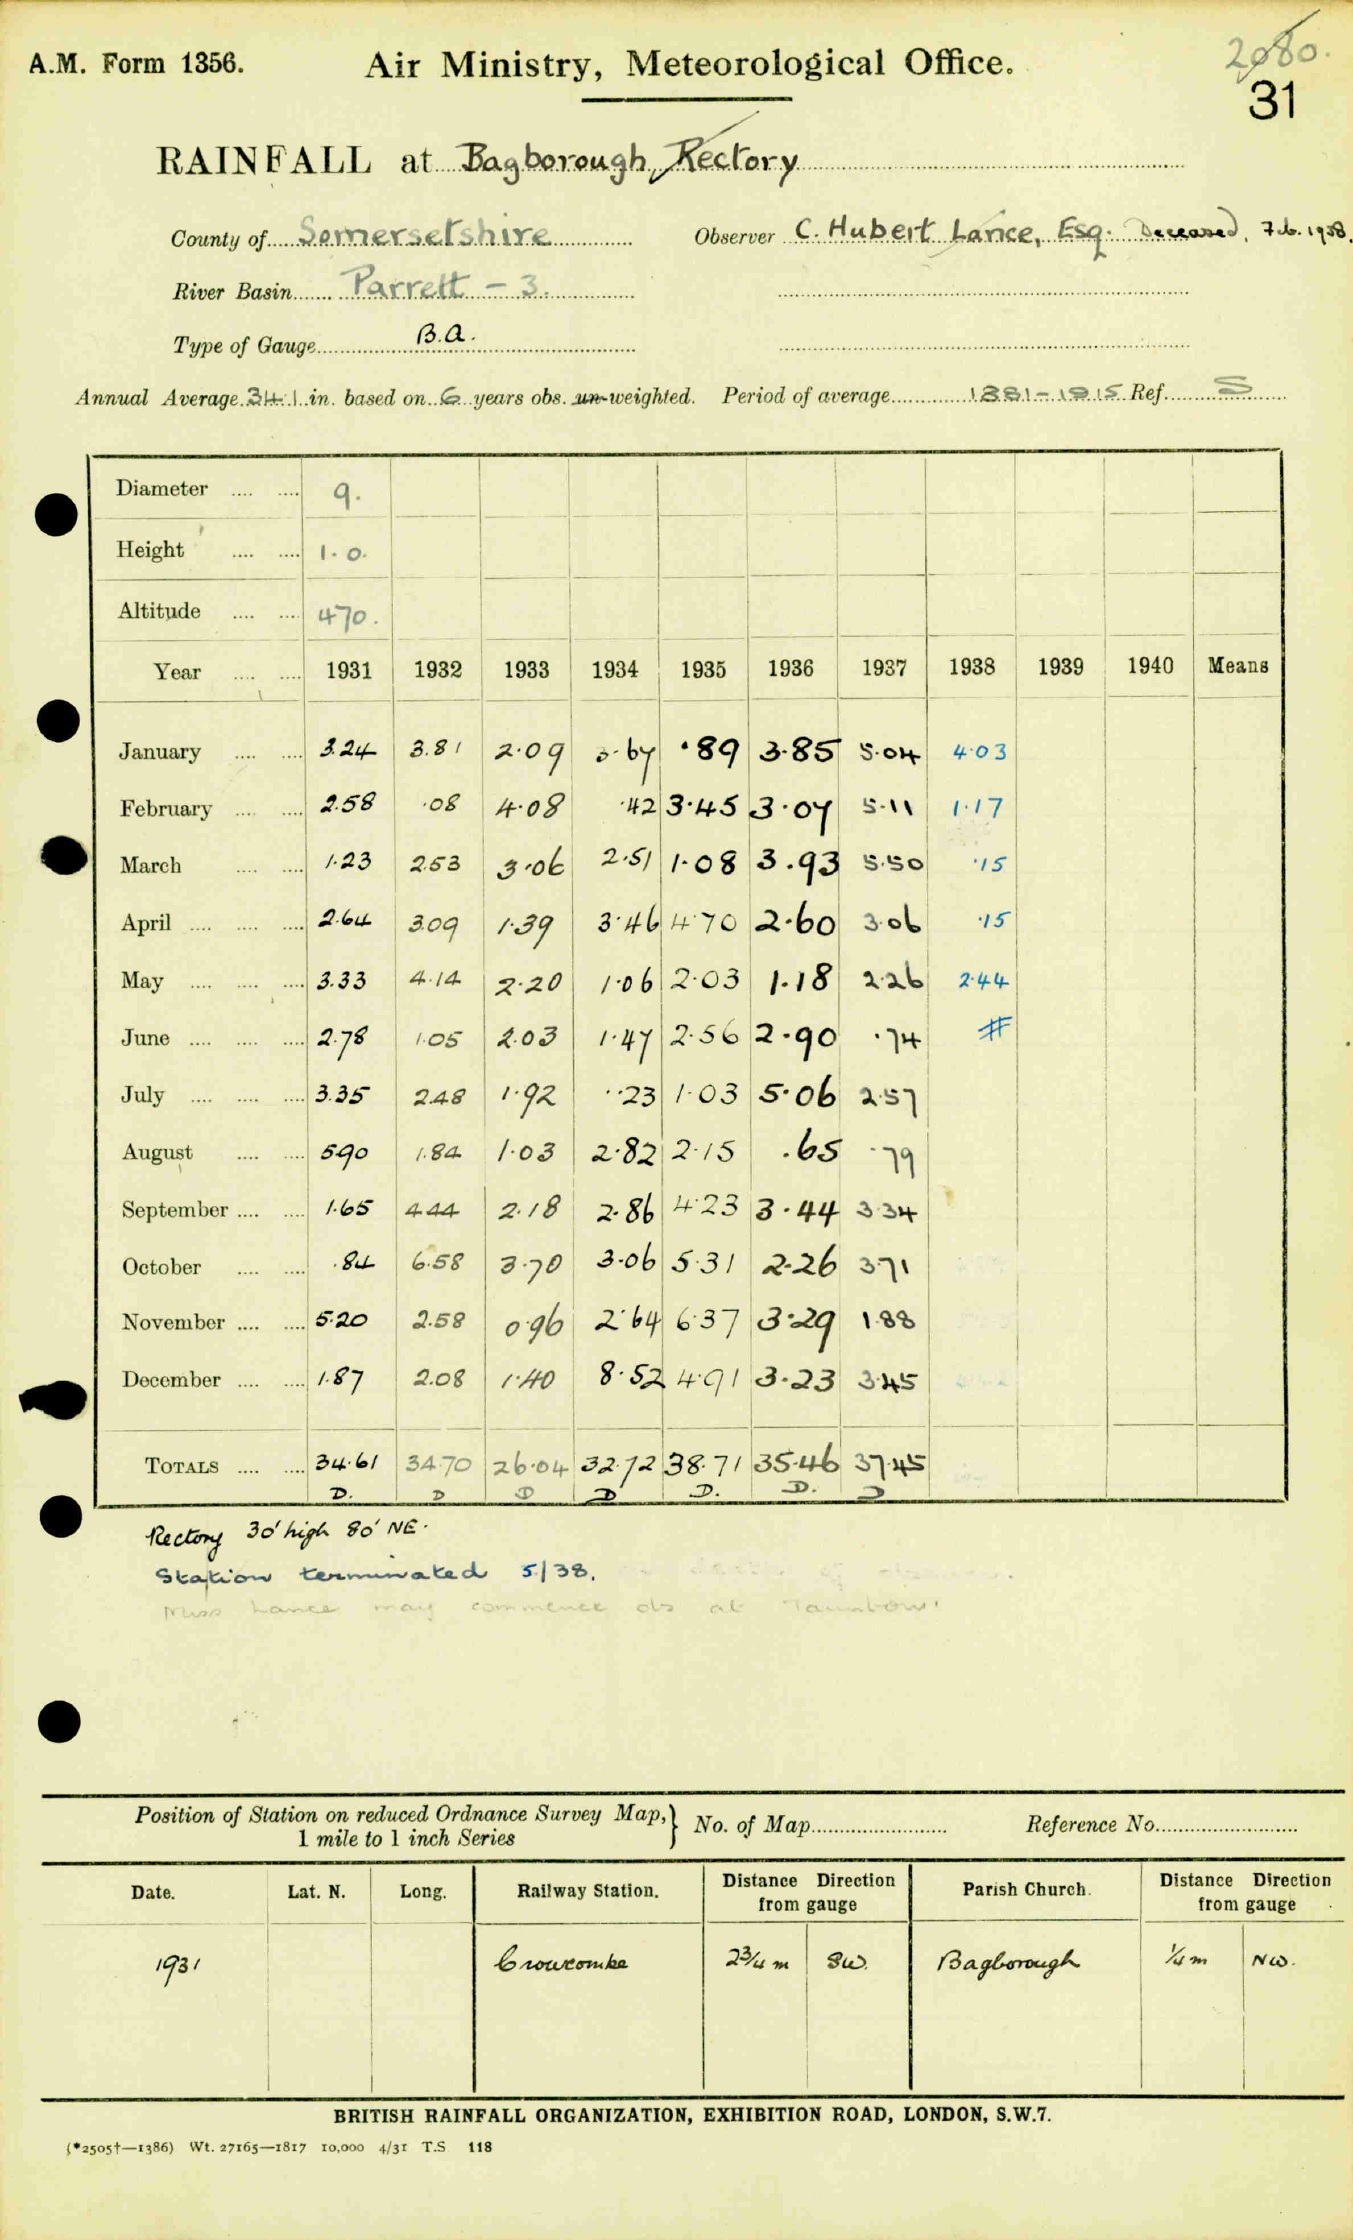 A.M. Form 1356.
Air Ministry, Meteorological Office.
2080.
31
RAINFALL at Bagborough, Rectory
County of Somersetshire
Observer C. Hubert Lance, Esq. Deceased, Feb. 1938.
River Basin Parrett - 3.
Type of Gauge B.A.
Annual Average 34.1 in. based on 6 years obs. un-weighted. Period of average 1881-1915 Ref. S
Diameter 9.
Height 1.0.
Altitude 470.
Year 1931 1932 1933 1934 1935 1936 1937 1938 1939 1940 Means
January 3.24 3.81 2.09 3.67 .89 3.85 5.04 4.03
February 2.58 .08 4.08 .42 3.45 3.07 5.11 1.17
March 1.23 2.53 3.06 2.51 1.08 3.93 5.50 .15
April 2.64 3.09 1.39 3.46 4.70 2.60 3.06 .15
May 3.33 4.14 2.20 1.06 2.03 1.18 2.26 2.44
June 2.78 1.05 2.03 1.47 2.56 2.90 .74 #
July 3.35 2.48 1.92 .23 1.03 5.06 2.57
August 5.90 1.84 1.03 2.82 2.15 .65 .79
September 1.65 4.44 2.18 2.86 4.23 3.44 3.34
October .84 6.58 3.70 3.06 5.31 2.26 3.71
November 5.20 2.58 0.96 2.64 6.37 3.29 1.88
December 1.87 2.08 1.40 8.52 4.91 3.23 3.45
TOTALS 34.61 34.70 26.04 32.72 38.71 35.46 37.45
D. D D D D. D. D
Rectory 30' high 80' NE.
Station terminated 5/38.
Miss Lance may commence obs at Taunton.
Position of Station on reduced Ordnance Survey Map, 1 mile to 1 inch Series } No. of Map Reference No.
Date. Lat. N. Long. Railway Station. Distance Direction from gauge Parish Church. Distance Direction from gauge
1931 Crowcombe 2¾ m SW. Bagborough ¼ m NW.
BRITISH RAINFALL ORGANIZATION, EXHIBITION ROAD, LONDON, S.W.7.
(*2505†—1386) Wt. 27165—1817 10,000 4/31 T.S 118